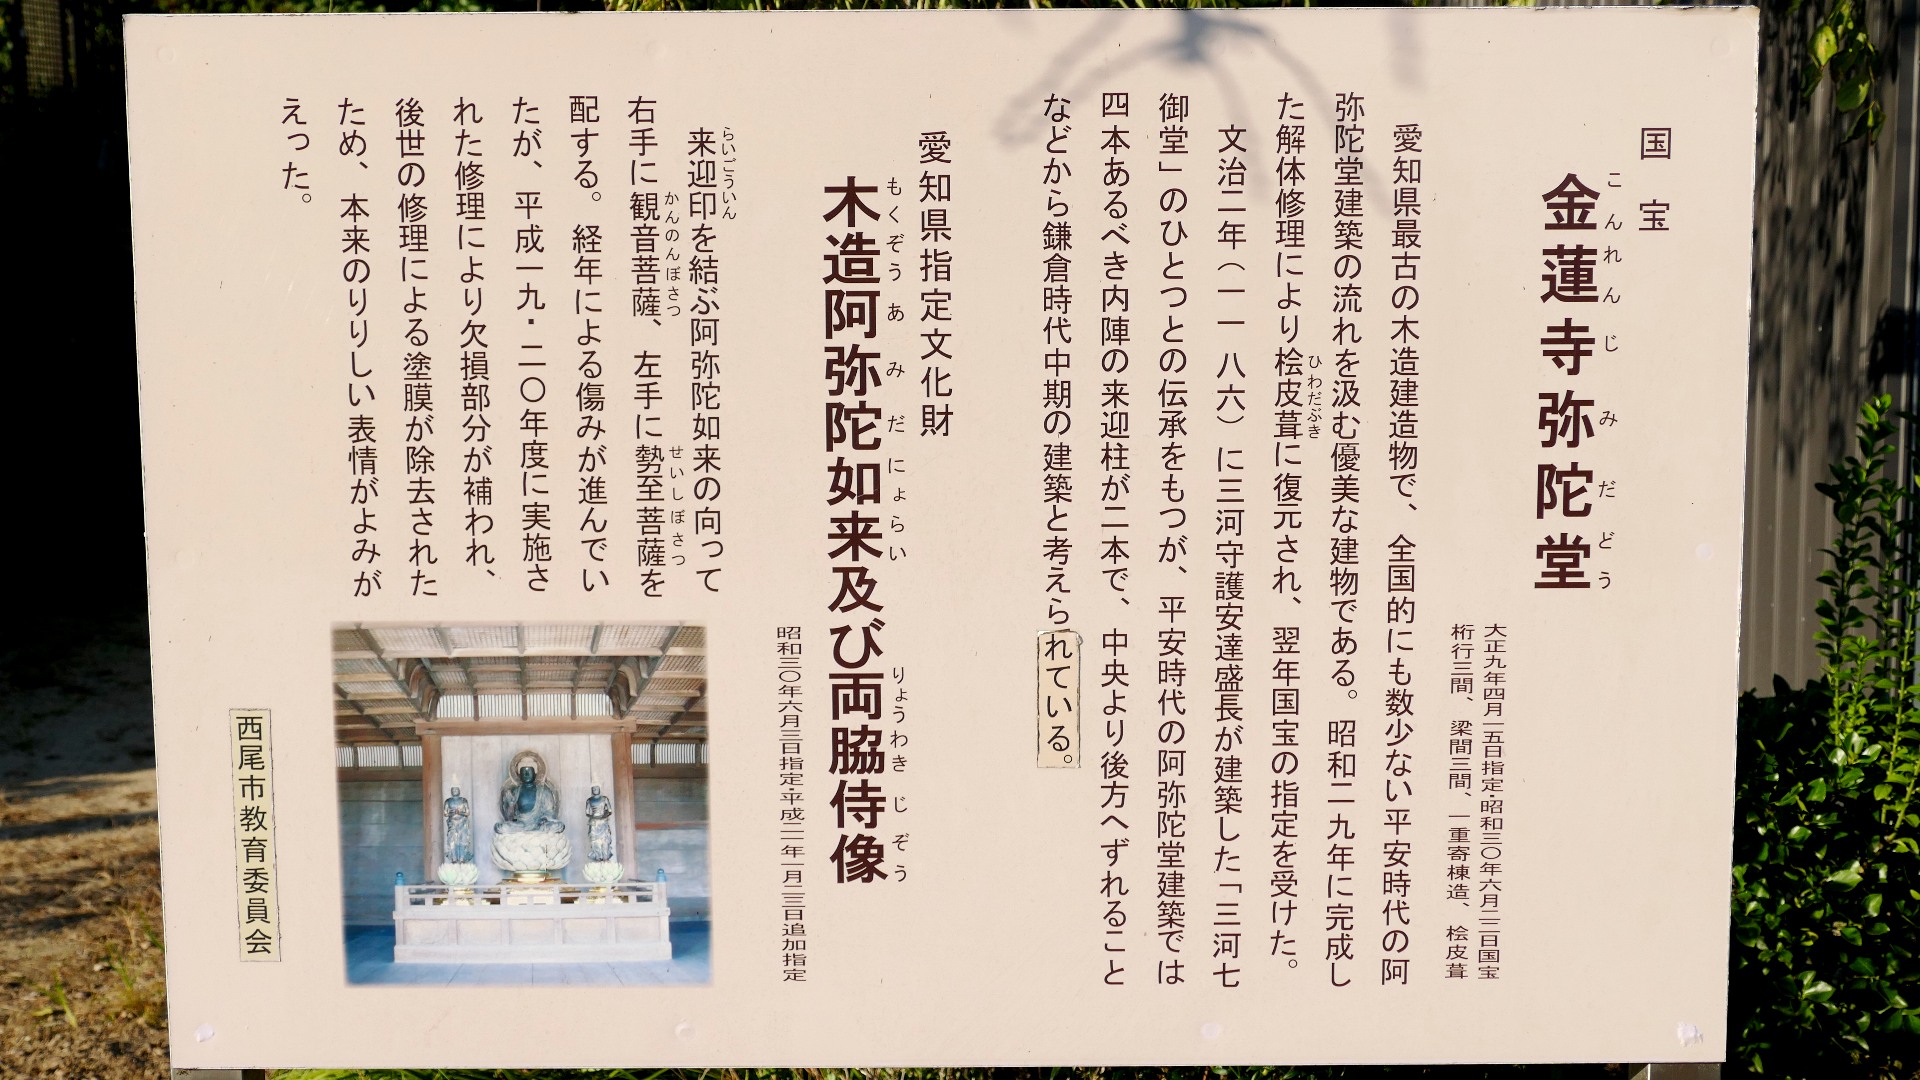 国宝
金蓮寺弥陀堂
こんれんじみだどう
大正九年四月一五日指定・昭和三〇年六月二二日国宝
桁行三間、梁間三間、一重寄棟造、桧皮葺
愛知県最古の木造建造物で、全国的にも数少ない平安時代の阿
弥陀堂建築の流れを汲む優美な建物である。昭和二九年に完成し
た解体修理により桧皮葺に復元され、翌年国宝の指定を受けた。
ひわだぶき
文治二年(一一八六)に三河守護安達盛長が建築した「三河七
御堂」のひとつとの伝承をもつが、平安時代の阿弥陀堂建築では
四本あるべき内陣の来迎柱が二本で、中央より後方へずれること
などから鎌倉時代中期の建築と考えられている。
愛知県指定文化財
木造阿弥陀如来及び両脇侍像
もくぞうあみだにょらい りょうわきじぞう
昭和三〇年六月三日指定・平成二一年一月二三日追加指定
来迎印を結ぶ阿弥陀如来の向って
らいごういん
右手に観音菩薩、左手に勢至菩薩を
かんのんぼさつ せいしぼさつ
配する。経年による傷みが進んでい
たが、平成一九・二〇年度に実施さ
れた修理により欠損部分が補われ、
後世の修理による塗膜が除去された
ため、本来のりりしい表情がよみが
えった。
西尾市教育委員会